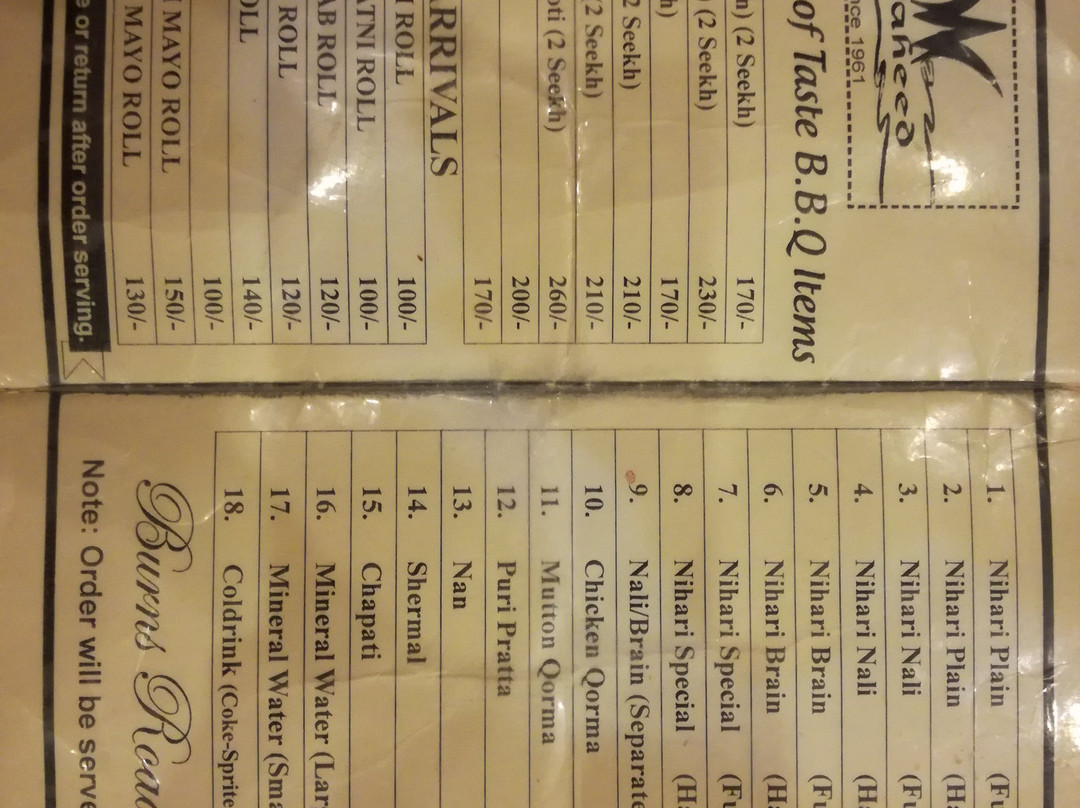 aheed
nce 1961
of Taste B.B.Q Items
n) (2 Seekh) 170/-
) (2 Seekh) 230/-
h) 170/-
2 Seekh) 210/-
(2 Seekh) 210/-
oti (2 Seekh) 260/-
200/-
170/-
RRIVALS
I ROLL 100/-
TNI ROLL 100/-
AB ROLL 120/-
ROLL 120/-
OLL 140/-
100/-
I MAYO ROLL 150/-
MAYO ROLL 130/-
e or return after order serving.
1. Nihari Plain (F
2. Nihari Plain (Ha
3. Nihari Nali (F
4. Nihari Nali (Ha
5. Nihari Brain (Fu
6. Nihari Brain (Ha
7. Nihari Special (Fu
8. Nihari Special (Ha
9. Nali/Brain (Separate
10. Chicken Qorma
11. Mutton Qorma
12. Puri Pratta
13. Nan
14. Shermal
15. Chapati
16. Mineral Water (Lar
17. Mineral Water (Sma
18. Coldrink (Coke-Sprite
Burns Roa
Note: Order will be serve